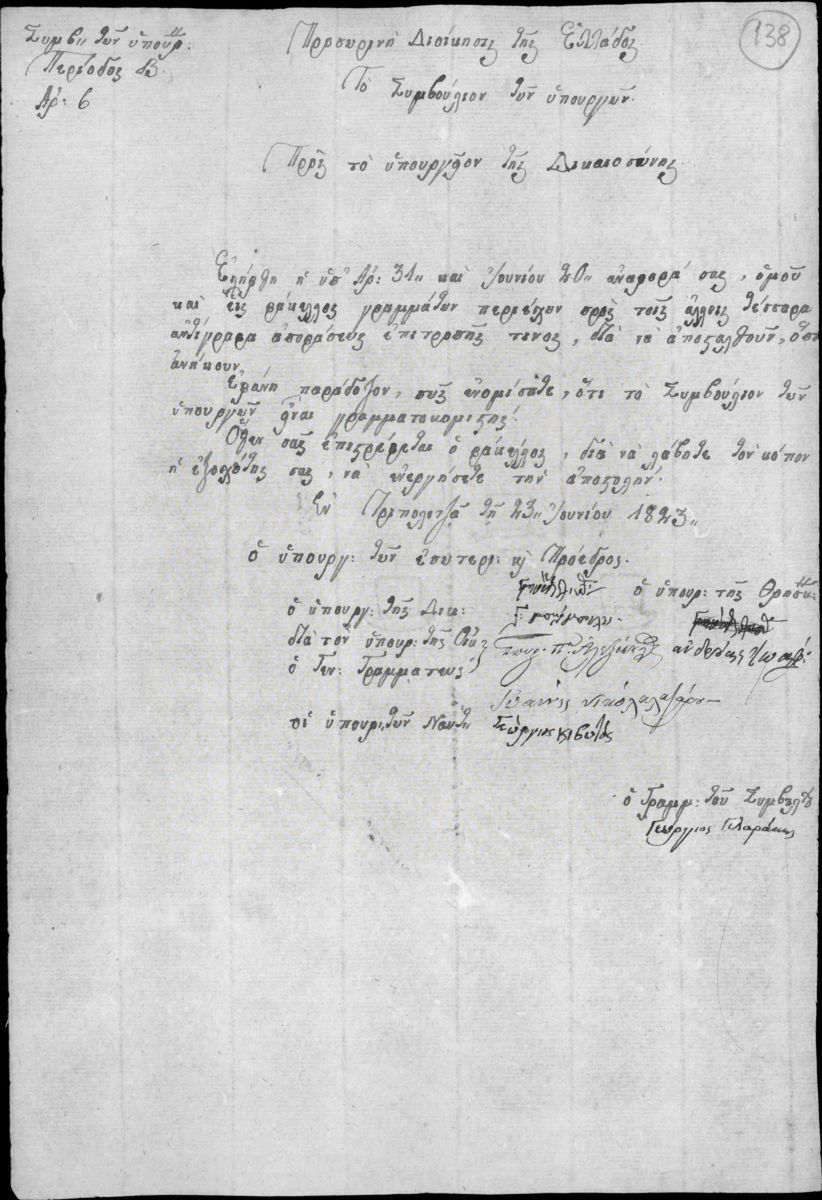 Συμβ" τῶν ὑπουρ:
Περίοδος Β.
Ἀρ: 6
138
Προσωρινὴ Διοίκησις τῆς Ἑλλάδος
Τὸ Συμβούλιον τῶν ὑπουργῶν.
Πρὸς τὸ ὑπουργεῖον τῆς Δικαιοσύνης
Ἐλήφθη ἡ ὑπ' Ἀρ: 31" καὶ Ἰουνίου 20" ἀναφορά σας, ὁμοῦ
καὶ εἷς φάκελλος γραμμάτων περιέχων πρὸς τοῖς ἄλλοις τέσσαρα
ἀντίγραφα ἀποφάσεως ἐπιτροπῆς τινος, διὰ νὰ ἀποσταλθοῦν, ὅπου
ἀνήκουν.
Ἐφάνη παράδοξον, πῶς ἐνομίσατε, ὅτι τὸ Συμβούλιον τῶν
ὑπουργῶν εἶναι γραμματοκομιστής!
Ὅθεν σᾶς ἐπιστρέφεται ὁ φάκελλος, διὰ νὰ λάβητε τὸν κόπον
ἡ ἐξοχότης σας, νὰ ἐνεργήσετε τὴν ἀποστολήν.
Ἐν Τριπολιτζᾷ τῇ 23" Ἰουνίου 1823"
ὁ ὑπουργ: τῶν ἐσωτερι: κ Πρόεδρος.
ὁ ὑπουρ: τῆς Θρησκ:
ὁ ὑπουργ: τῆς Δικ:
διὰ τὸν ὑπουρ: τῆς Οἰκ
ὁ Γεν: Γραμματεὺς
Ἰωάννης
οἱ ὑπουρ: τῶν Ναυτ
Γεώργιος κιβωτός
ὁ Γραμμ: τοῦ Συμβουλίου
Γεώργιος Γλαράκης